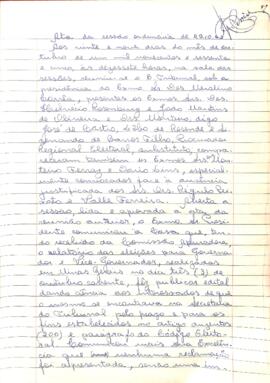 Ata da sessão ordinária de 29.10.
Aos vinte e nove dias do mês de ou-
tubro de um mil novecentos e sessenta
e cinco, às dezessete horas, na sala das
sessões, reuniu-se o E. Tribunal, sob a
presidência do Exmo. Sr. Des.
presentes os Exmos. Srs. Des.
e João Martins
de Oliveira e Drs.
de Castro, de Resende e
de Barros Filho, Procurador
Regional Eleitoral, substituto, compa-
receram também os Exmos. Srs.
Ferraz e especial-
mente convocados para a ausência
justificada dos Srs. Des. Régulo
e Valle Ferreira. Aberta a
sessão, lida e aprovada a ata da
reunião anterior, o Exmo. Sr. Presi-
dente comunicou à Casa que, ten-
do recebido da Comissão Apuradora,
o relatório das eleições para Governa-
dor e Vice-Governador, realizadas
em Minas Gerais no dia três (3) de
outubro corrente, fez publicar edital
dando ciência aos interessados de que
o mesmo se encontrava na Secretaria
do Tribunal pelo prazo e para os
fins estabelecidos no artigo duzentos
(200) e parágrafo do Código Eleito-
ral. Comunicou mais Sua Excelên-
cia que nenhuma reclamação
foi apresentada, sendo uma